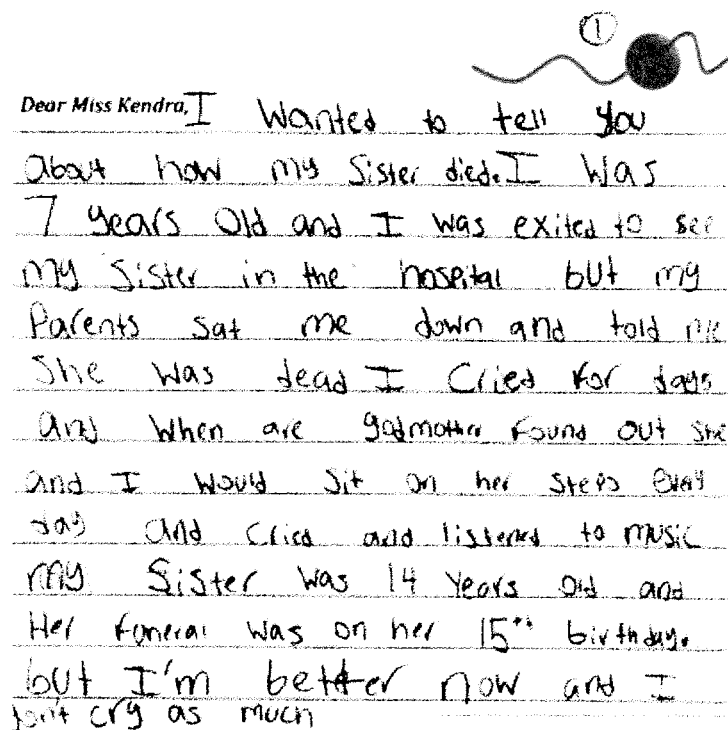 ①
Dear Miss Kendra, I Wanted to tell you
about how my Sister died. I Was
7 years Old and I was exited to see
my Sister in the hospital but my
Parents sat me down and told me
She was dead I Cried for days
and when are godmother found out she
and I would sit on her steps every
day and cried and listened to music
my Sister was 14 years old and
Her funeral was on her 15th birthday.
but I'm better now and I
don't cry as much